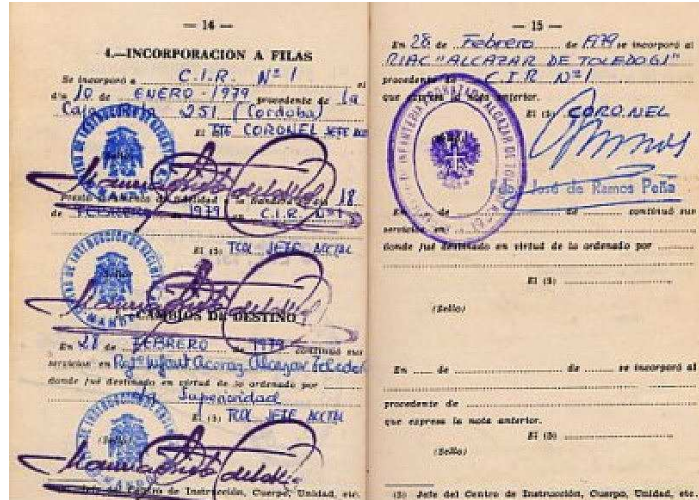 — 14 —
4.—INCORPORACION A FILAS
Se incorporó a C.I.R. Nº 1 el
día 10 de ENERO - 1979 procedente de la
Caja 251 (Cordoba)
El TTE CORONEL JEFE
Prestó de fidelidad a la Bandera el día 18
de FEBRERO 1979 en C.I.R. Nº 1
El (5) TCOL JEFE ACCTAL
CAMBIOS DE DESTINO
En 28 de FEBRERO de 1979 continuó sus
servicios en Regtº Infant Acoraz Alcazar Toledo
donde fué destinado en virtud de lo ordenado por
Superioridad
El (5) TCOL JEFE ACCTAL
(Sello)
(5) Jefe del Centro de Instrucción, Cuerpo, Unidad, etc.
— 15 —
En 28 de Febrero de 1979 se incorporó al
RIAC "ALCAZAR DE TOLEDO 61"
procedente de C.I.R Nº 1
que expresa la nota anterior.
El (5) CORONEL
Fdo. José de Ramos Peña
En de de continuó sus
servicios en
donde fué destinado en virtud de lo ordenado por
El (5)
(Sello)
En de de se incorporó al
procedente de
que expresa la nota anterior.
El (5)
(Sello)
(5) Jefe del Centro de Instrucción, Cuerpo, Unidad, etc.